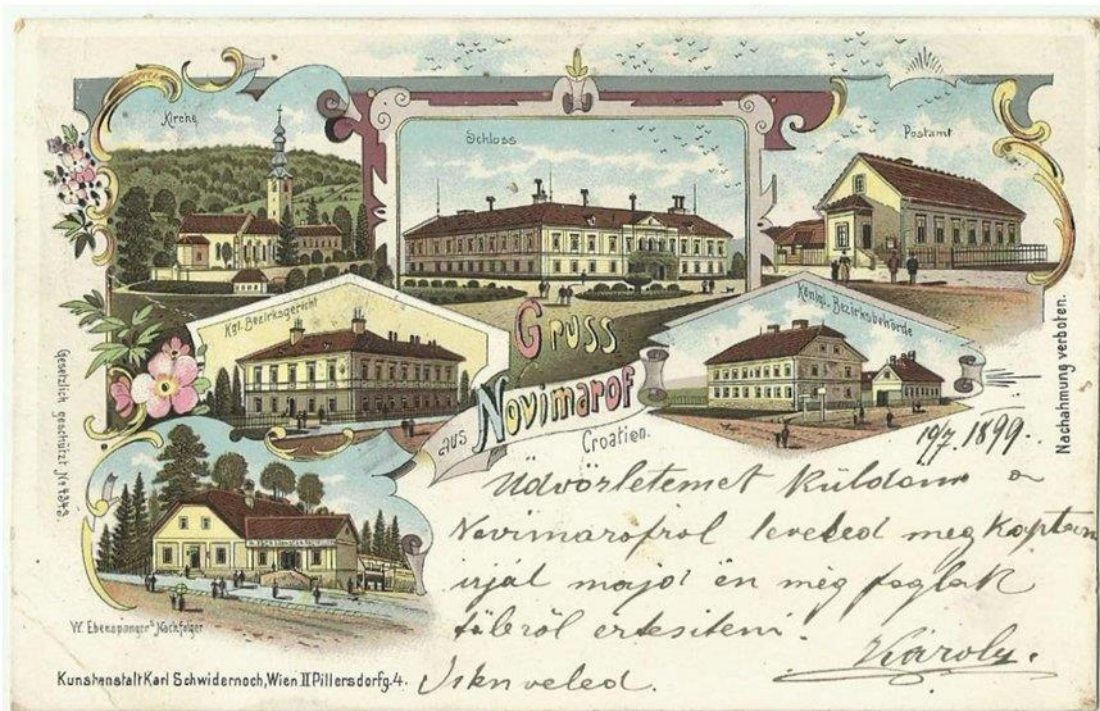 Kirche
Schloss
Postamt
Kgl. Bezirksgericht
Königl. Bezirksbehörde
Gruss
aus Novimarof
Croatien.
Gesetzlich geschützt No
Nachahmung verboten.
W. Ebenspanger's Nachfolger
Kunstanstalt Karl Schwidernoch, Wien II Pillersdorfg. 4.
19/7. 1899.
Üdvözletemet küldöm a
Novimarofrol leveled meg kaptam
irjál majd én még foglak
többröl ertesiteni.
Károly.
Istenveled.